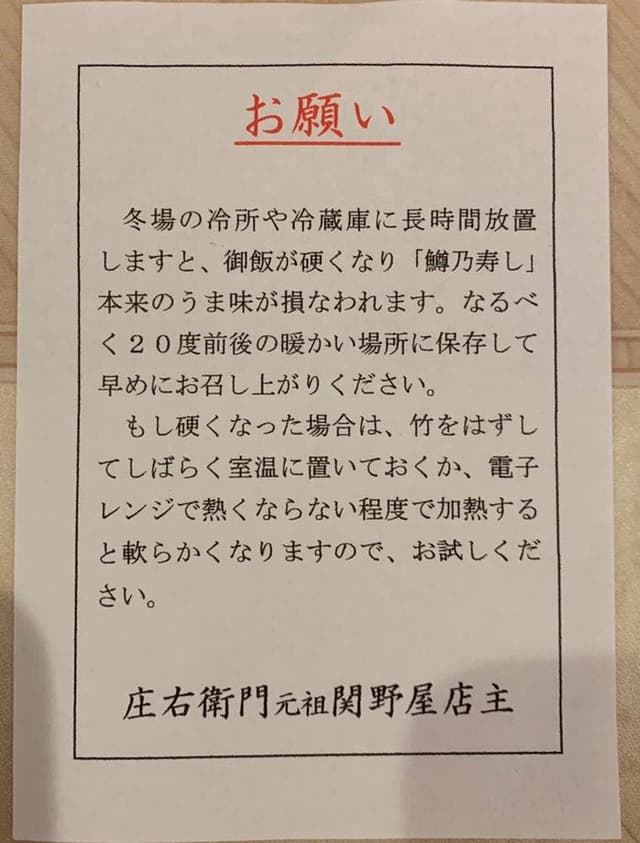 お願い
冬場の冷所や冷蔵庫に長時間放置
しますと、御飯が硬くなり「鱒乃寿し」
本来のうま味が損なわれます。なるべ
く２０度前後の暖かい場所に保存して
早めにお召し上がりください。
もし硬くなった場合は、竹をはずし
てしばらく室温に置いておくか、電子
レンジで熱くならない程度で加熱する
と軟らかくなりますので、お試しくだ
さい。
庄右衛門元祖関野屋店主